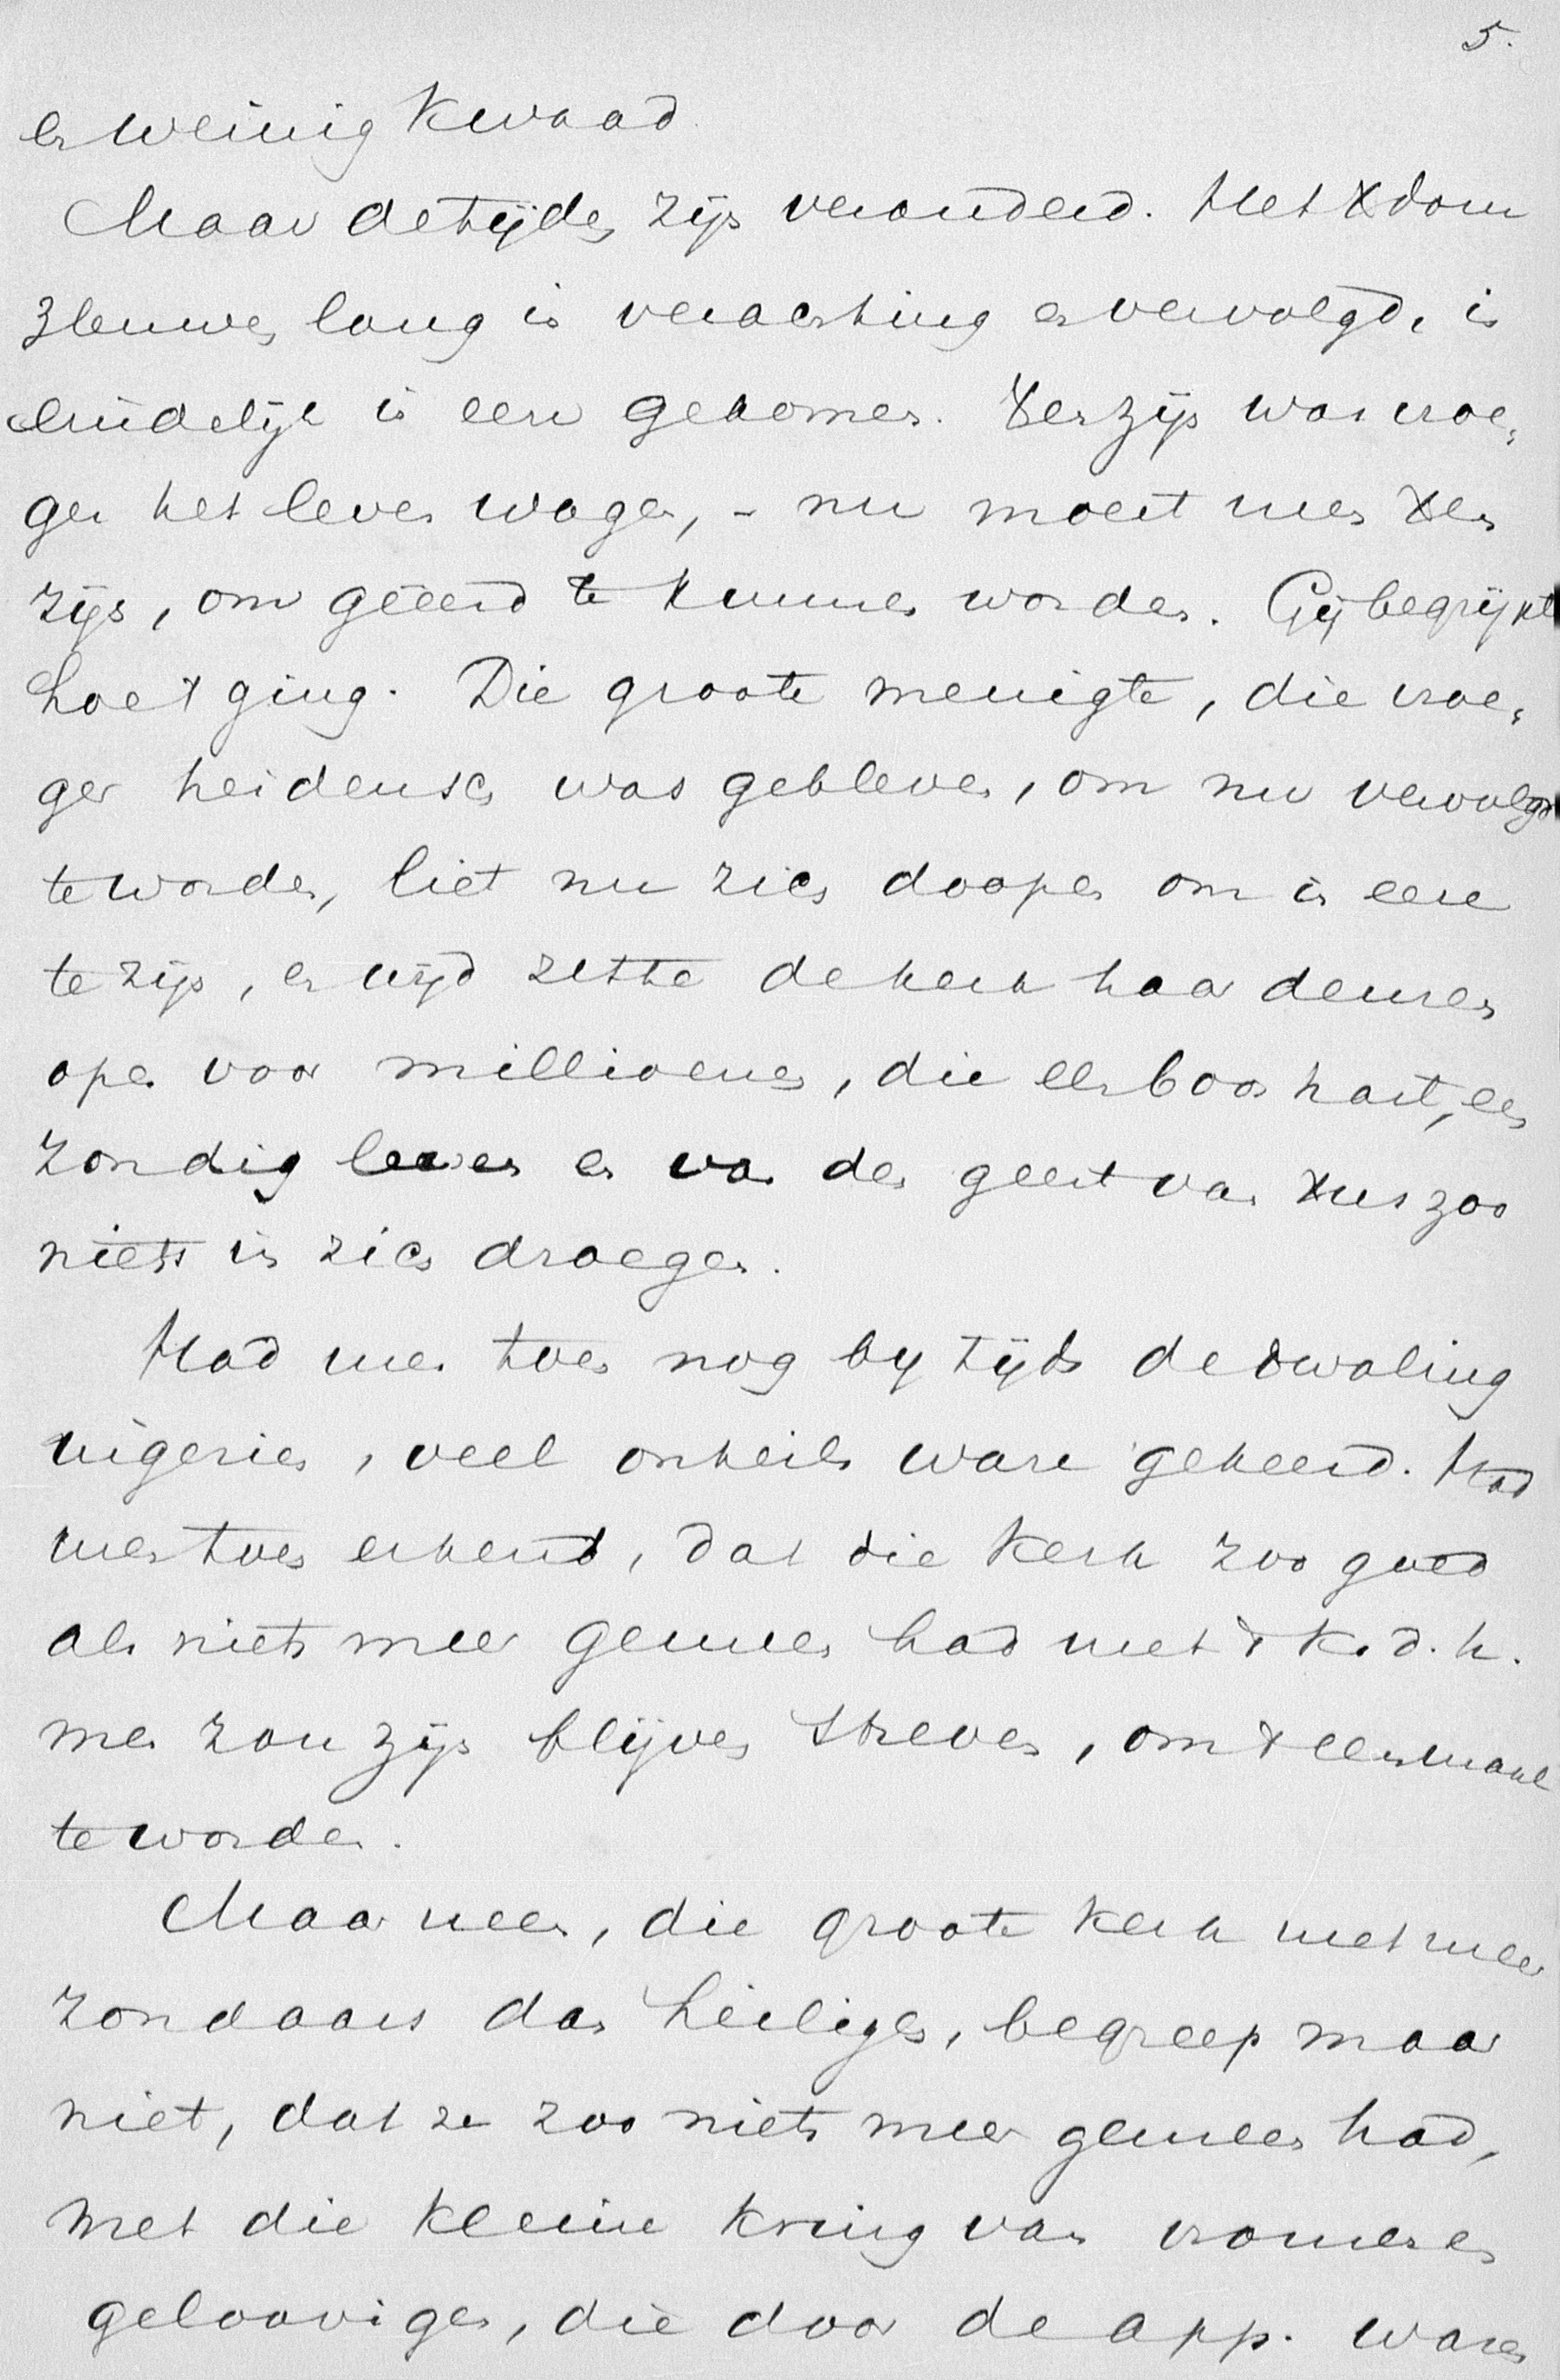 5.
er weinig kwaad.
Maar de tijden zijn veranderd. Het Xdom
3 eeuwen lang in verachting en vervolgd, is
eindelijk in eere gekomen. Xen zijn was vroe-
ger het leven wagen, - nu moest men Xen
zijn, om geëerd te kunnen worden. Gij begrijpt
hoe 't ging. Die groote menigte, die vroe-
ger heidensch was gebleven, om nu vervolgd
te worden, liet nu zich doopen om in eere
te zijn, en wijd zette de kerk haar deuren
open voor millioenen, die een boos hart, een
zondig leven en van den geest van Xus zoo
niets in zich droegen.
Had men toen nog by tijds de dwaling
ingezien, veel onheils ware gekeerd. Had
men toen erkend, dat die kerk zoo goed
als niets meer gemeen had met 't K. d. h.
men zou zijn blijven streven, om 't eenmaal
te worden.
Maar neen, die groote kerk met meer
zondaars dan heiligen, begreep maar
niet, dat ze zoo niets meer gemeen had,
met die kleine kring van vromen en
geloovigen, die door de app. waren